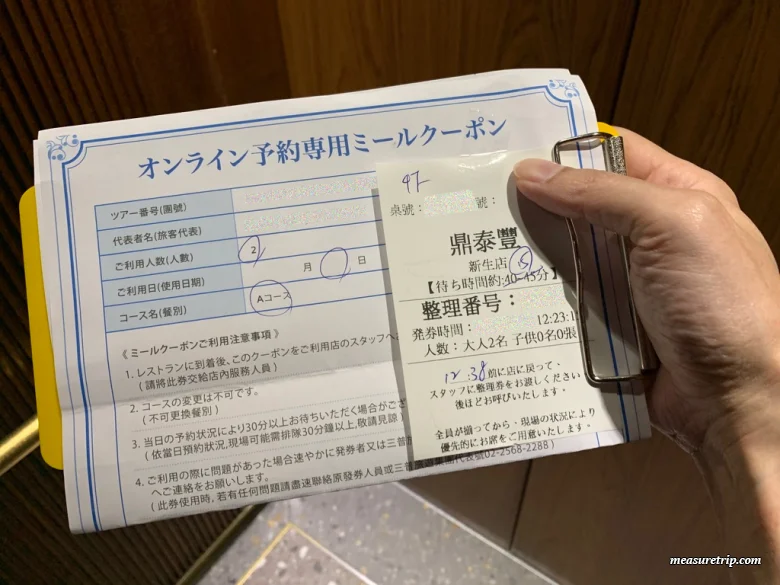 オンライン予約専用ミールクーポン
ツアー番号(團號)
代表者名(旅客代表)
ご利用人数(人數) 2
ご利用日(使用日期) 月 日
コース名(餐別) Aコース
《 ミールクーポンご利用注意事項 》
1. レストランに到着後、このクーポンをご利用店のスタッフへ
( 請將此券交給店內服務人員 )
2. コースの変更は不可です。
( 不可更換餐別 )
3. 当日の予約状況により30分以上お待ちいただく場合がござ
( 依當日預約狀況,現場可能需排隊30分鐘以上,敬請見諒 )
4. ご利用の際に問題があった場合速やかに発券者又は三普
へご連絡をお願いします。
( 此券使用時, 若有任何問題請盡速聯絡原發券人員或三普 代表號02-2568-2288 )
桌號: 號:
鼎泰豐
新生店
15
【待ち時間約:40-45分】
整理番号:
発券時間: 12:23:1
人数：大人2名 子供0名0張
12:38前に店に戻って・
スタッフに整理券をお渡しください
後ほどお呼びいたします・
全員が揃ってから・現場の状況により
優先的にお席をご用意いたします・
measuretrip.com